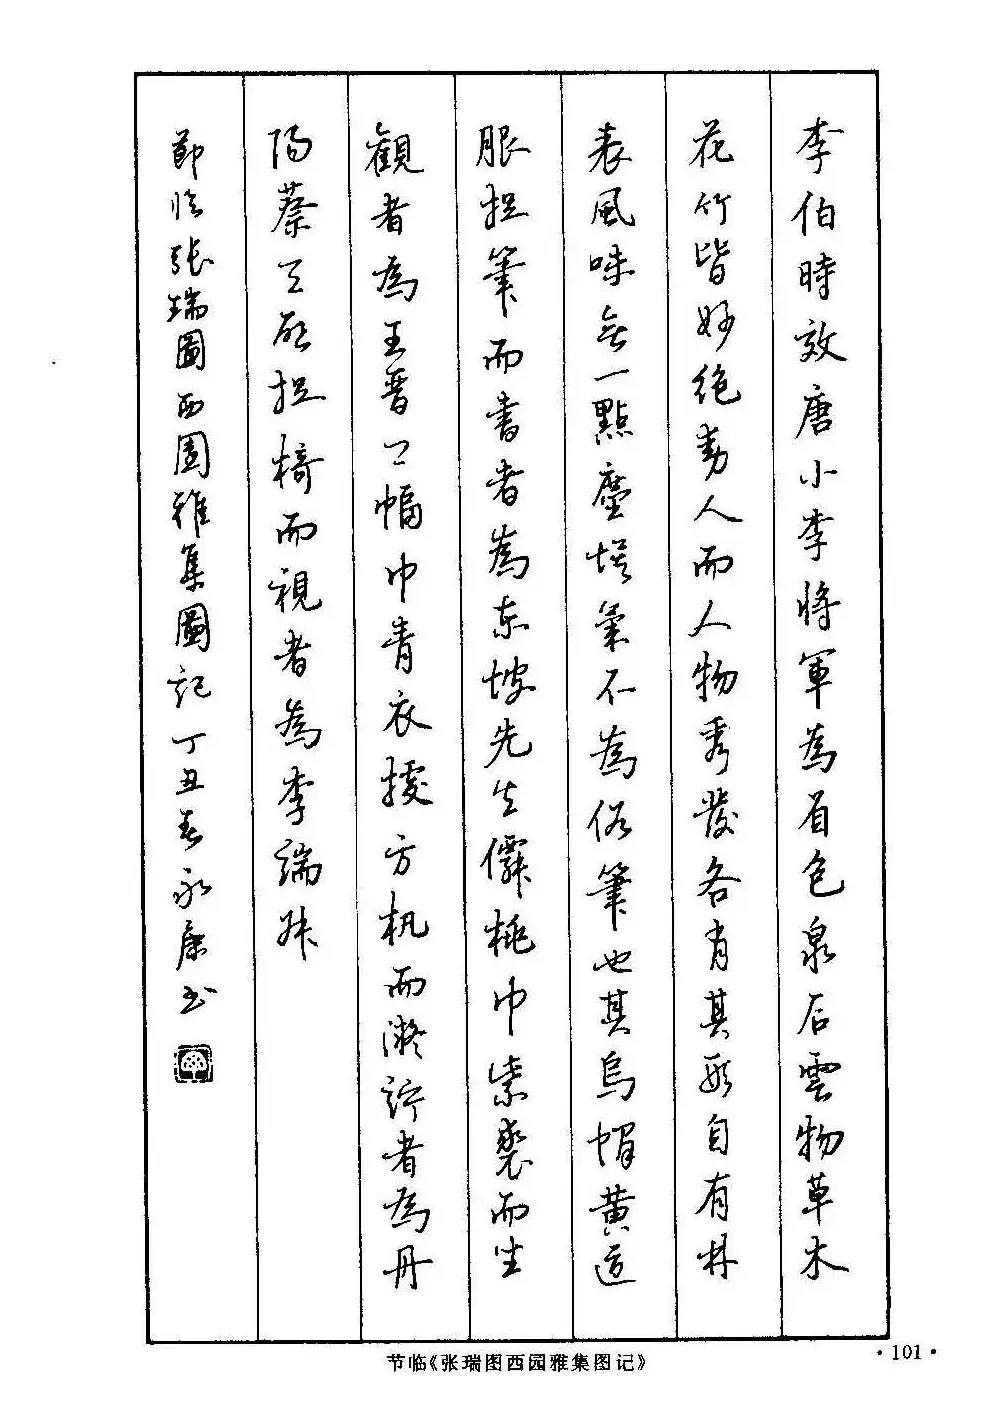 李伯時效唐小李將軍為着色泉石雲物草木
花竹皆妙絕動人而人物秀發各肖其形自有林
表風味無一點塵埃氣不為俗筆也其烏帽黃道
服捉筆而書者為東坡先生僊桃巾紫裘而坐
觀者為王晉卿幅巾青衣據方机而凝竚者為丹
陽蔡天啟捉椅而視者為李端叔
節臨張瑞圖西園雅集圖記丁丑春永康書
节临《张瑞图西园雅集图记》
·101·